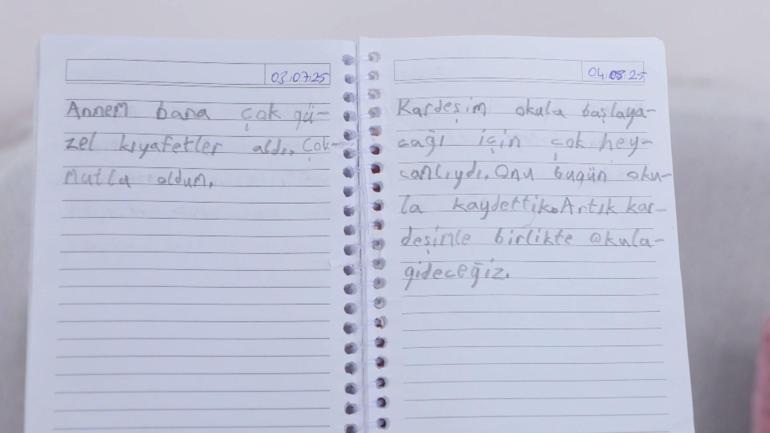 03.07.25
Annem bana çok gü-
zel kıyafetler aldı. Çok-
mutlu oldum.
04.08.25
Kardeşim okula başlaya-
cağı için çok hey-
canlıydı. Onu bugün oku-
la kaydettik. Artık kar-
deşimle birlikte okula-
gideceğiz.